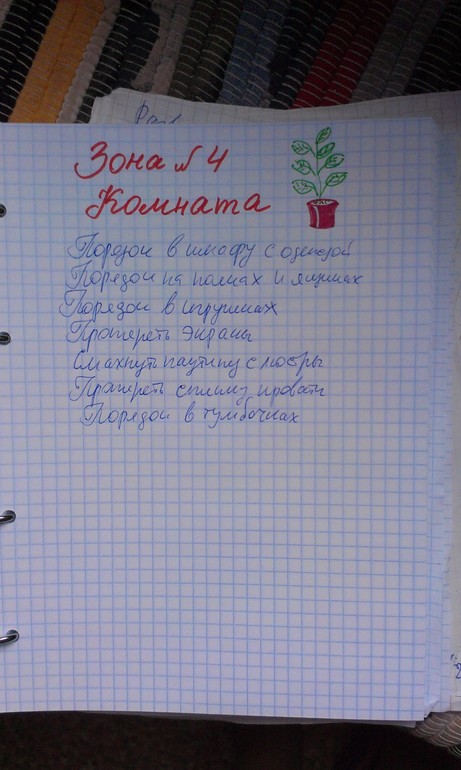 Зона №4
Комната
Порядок в шкафу с одеждой
Порядок на полках и ящиках
Порядок в игрушках
Протереть экраны
Смахнуть паутину с люстры
Протереть спинку кровати
Порядок в тумбочках